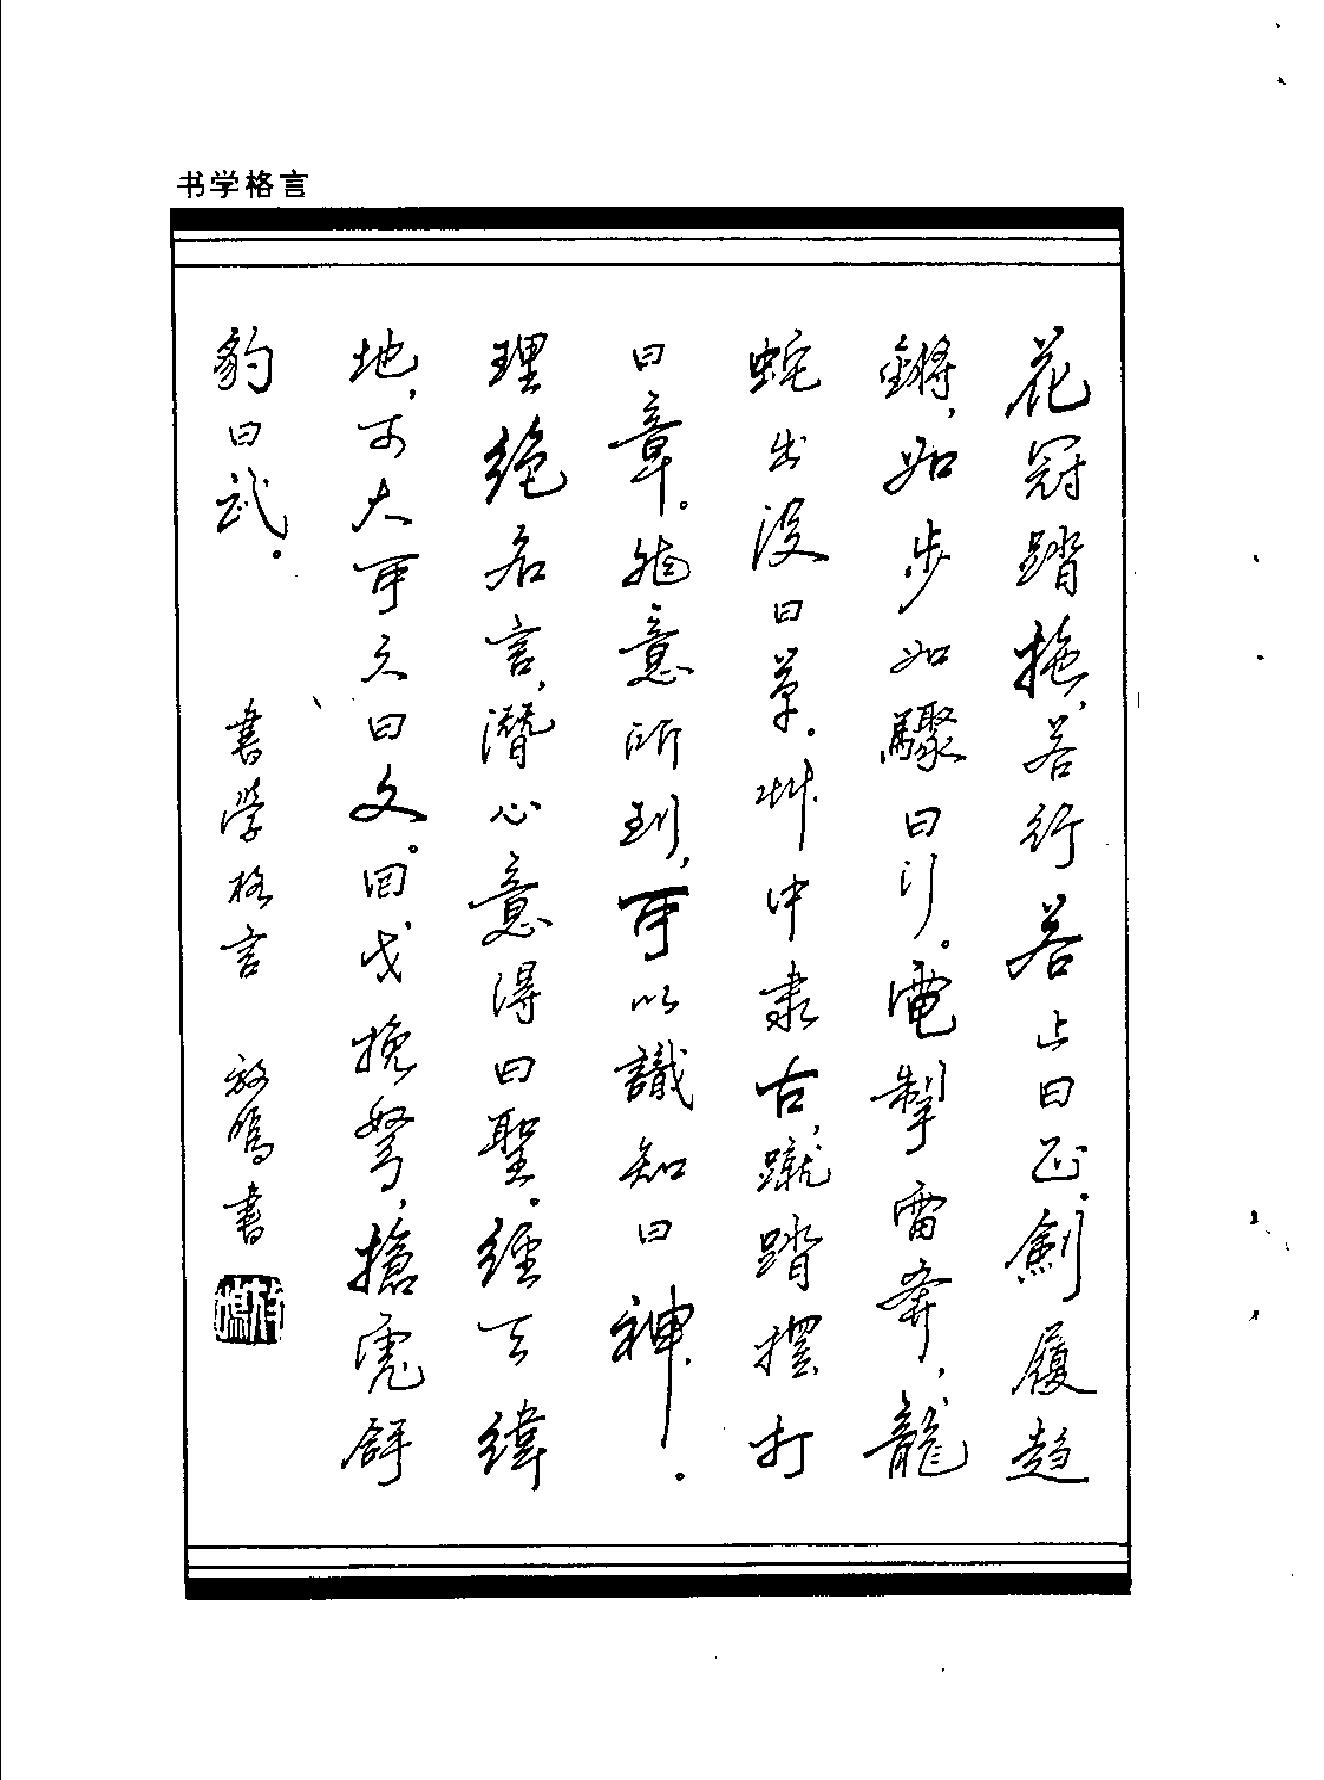 书学格言
花冠踏拖，若行若止曰正。劍履趍
鏘，如步如驟曰行。電掣雷奔，龍
蛇出没曰草。艸中隶古，蹴踏擺打
曰章。意所到，可以識知曰神。
理绝名言，潛心意得曰聖。經天緯
地，可大可久曰文。回戈挽弩，搶虎舒
豹曰武。
書學格言 書